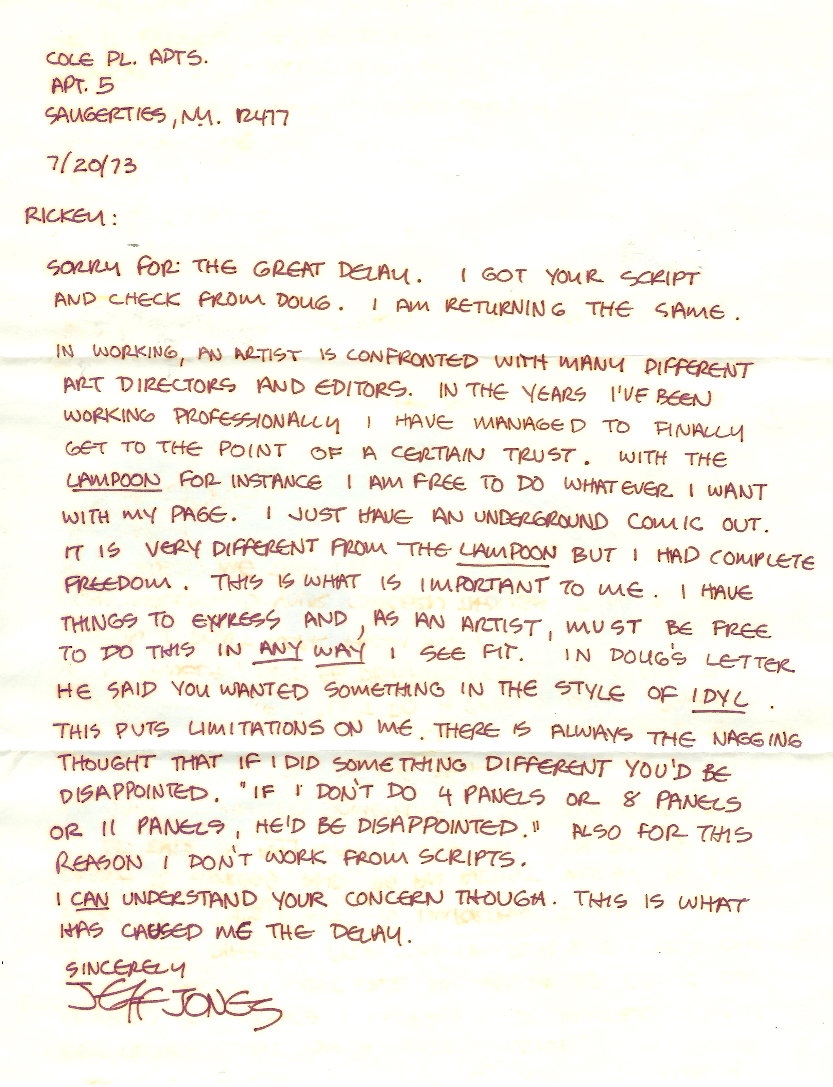 COLE PL. APTS.
APT. 5
SAUGERTIES, NY. 12477
7/20/73
RICKEY:
SORRY FOR THE GREAT DELAY. I GOT YOUR SCRIPT
AND CHECK FROM DOUG. I AM RETURNING THE SAME.
IN WORKING, AN ARTIST IS CONFRONTED WITH MANY DIFFERENT
ART DIRECTORS AND EDITORS. IN THE YEARS I'VE BEEN
WORKING PROFESSIONALLY I HAVE MANAGED TO FINALLY
GET TO THE POINT OF A CERTAIN TRUST. WITH THE
LAMPOON FOR INSTANCE I AM FREE TO DO WHATEVER I WANT
WITH MY PAGE. I JUST HAVE AN UNDERGROUND COMIC OUT.
IT IS VERY DIFFERENT FROM THE LAMPOON BUT I HAD COMPLETE
FREEDOM. THIS IS WHAT IS IMPORTANT TO ME. I HAVE
THINGS TO EXPRESS AND, AS AN ARTIST, MUST BE FREE
TO DO THIS IN ANY WAY I SEE FIT. IN DOUG'S LETTER
HE SAID YOU WANTED SOMETHING IN THE STYLE OF IDYL.
THIS PUTS LIMITATIONS ON ME. THERE IS ALWAYS THE NAGGING
THOUGHT THAT IF I DID SOMETHING DIFFERENT YOU'D BE
DISAPPOINTED. "IF I DON'T DO 4 PANELS OR 8 PANELS
OR 11 PANELS, HE'D BE DISAPPOINTED." ALSO FOR THIS
REASON I DON'T WORK FROM SCRIPTS.
I CAN UNDERSTAND YOUR CONCERN THOUGH. THIS IS WHAT
HAS CAUSED ME THE DELAY.
SINCERELY
JEFF JONES